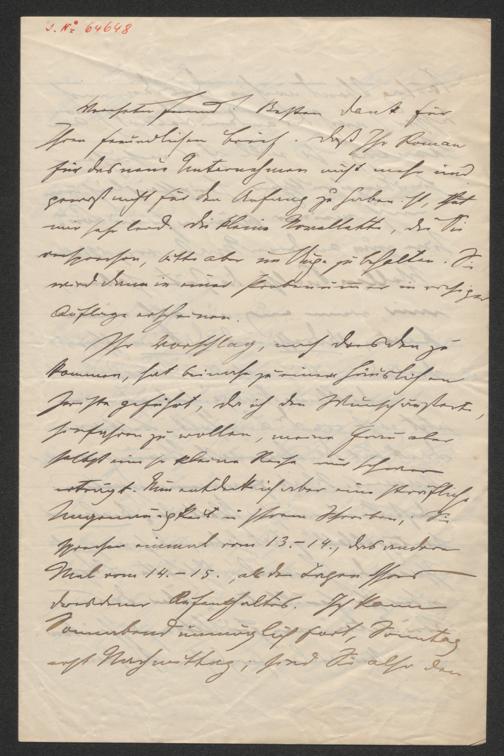 J. Nº 64648
Verehrter Freund! Besten Dank für
Ihren freundlichen Brief. Daß Ihr Roman
für das neue Unternehmen nicht mehr und
gewiß nicht für den Anfang zu haben ist, thut
mir sehr leid. Die kleine Novellette, die Sie
versprechen, bitte aber im Auge zu behalten. Sie
wird dann in einer in riesiger
Auflage erscheinen.
Ihr Vorschlag, nach Dresden zu
kommen, hat beinahe zu einem häuslichen
Zwiste geführt, da ich den Wunsch äußerte,
hinfahren zu wollen, meine Frau aber
selbst eine so kleine Reise nur schwer
erträgt. Nun entdeckt ich aber eine sträfliche
Ungenauigkeit in Ihrem Schreiben, Sie
sprechen einmal vom 13.-14., das andere
Mal vom 14.-15., als den Tagen Ihres
Dresdener Aufenthaltes. Ich kann
Sonnabend unmöglich fort, Sonntag
erst Nachmittag; sind Sie also den